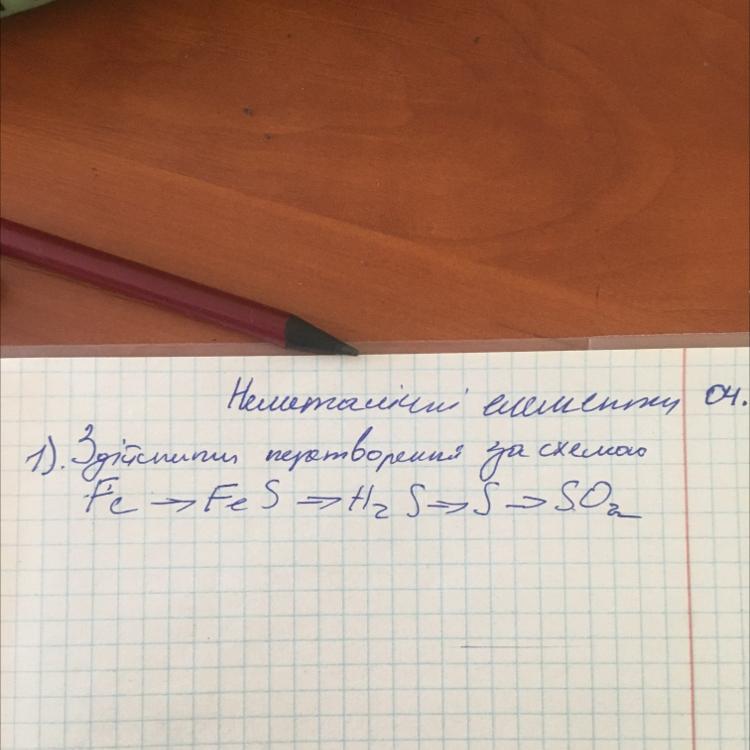 Неметалічні елементи 04.
1). Здійснити перетворення за схемою
Fe → FeS → H₂S → S → SO₂